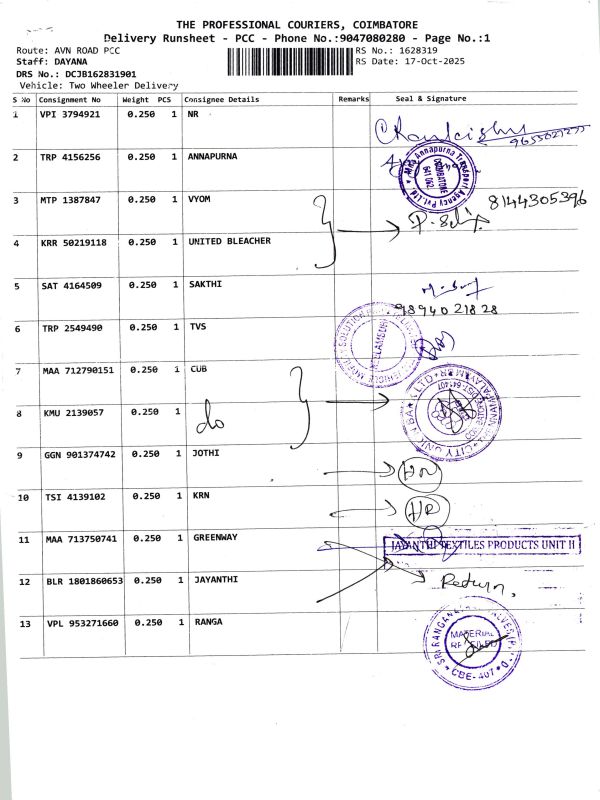 THE PROFESSIONAL COURIERS, COIMBATORE
Delivery Runsheet - PCC - Phone No.:9047080280 - Page No.:1
Route: AVN ROAD PCC
RS No.: 1628319
Staff: DAYANA
RS Date: 17-Oct-2025
DRS No.: DCJB162831901
Vehicle: Two Wheeler Delivery
S No Consignment No Weight PCS Consignee Details Remarks Seal & Signature
1 VPI 3794921 0.250 1 NR
9655021255
2 TRP 4156256 0.250 1 ANNAPURNA
Annapurna Transport Agency Pvt. Ltd.
COIMBATORE
641 062.
3 MTP 1387847 0.250 1 VYOM
8144305396
4 KRR 50219118 0.250 1 UNITED BLEACHER
5 SAT 4164509 0.250 1 SAKTHI
9894021828
6 TRP 2549490 0.250 1 TVS
NEELAMBUR
7 MAA 712790151 0.250 1 CUB
CITY UNION BANK LTD
8 KMU 2139057 0.250 1
do
9 GGN 901374742 0.250 1 JOTHI
10 TSI 4139102 0.250 1 KRN
11 MAA 713750741 0.250 1 GREENWAY
JAYANTHI TEXTILES PRODUCTS UNIT II
12 BLR 1801860653 0.250 1 JAYANTHI
Return.
13 VPL 953271660 0.250 1 RANGA
MATERIAL
RECEIVED
CBE-407